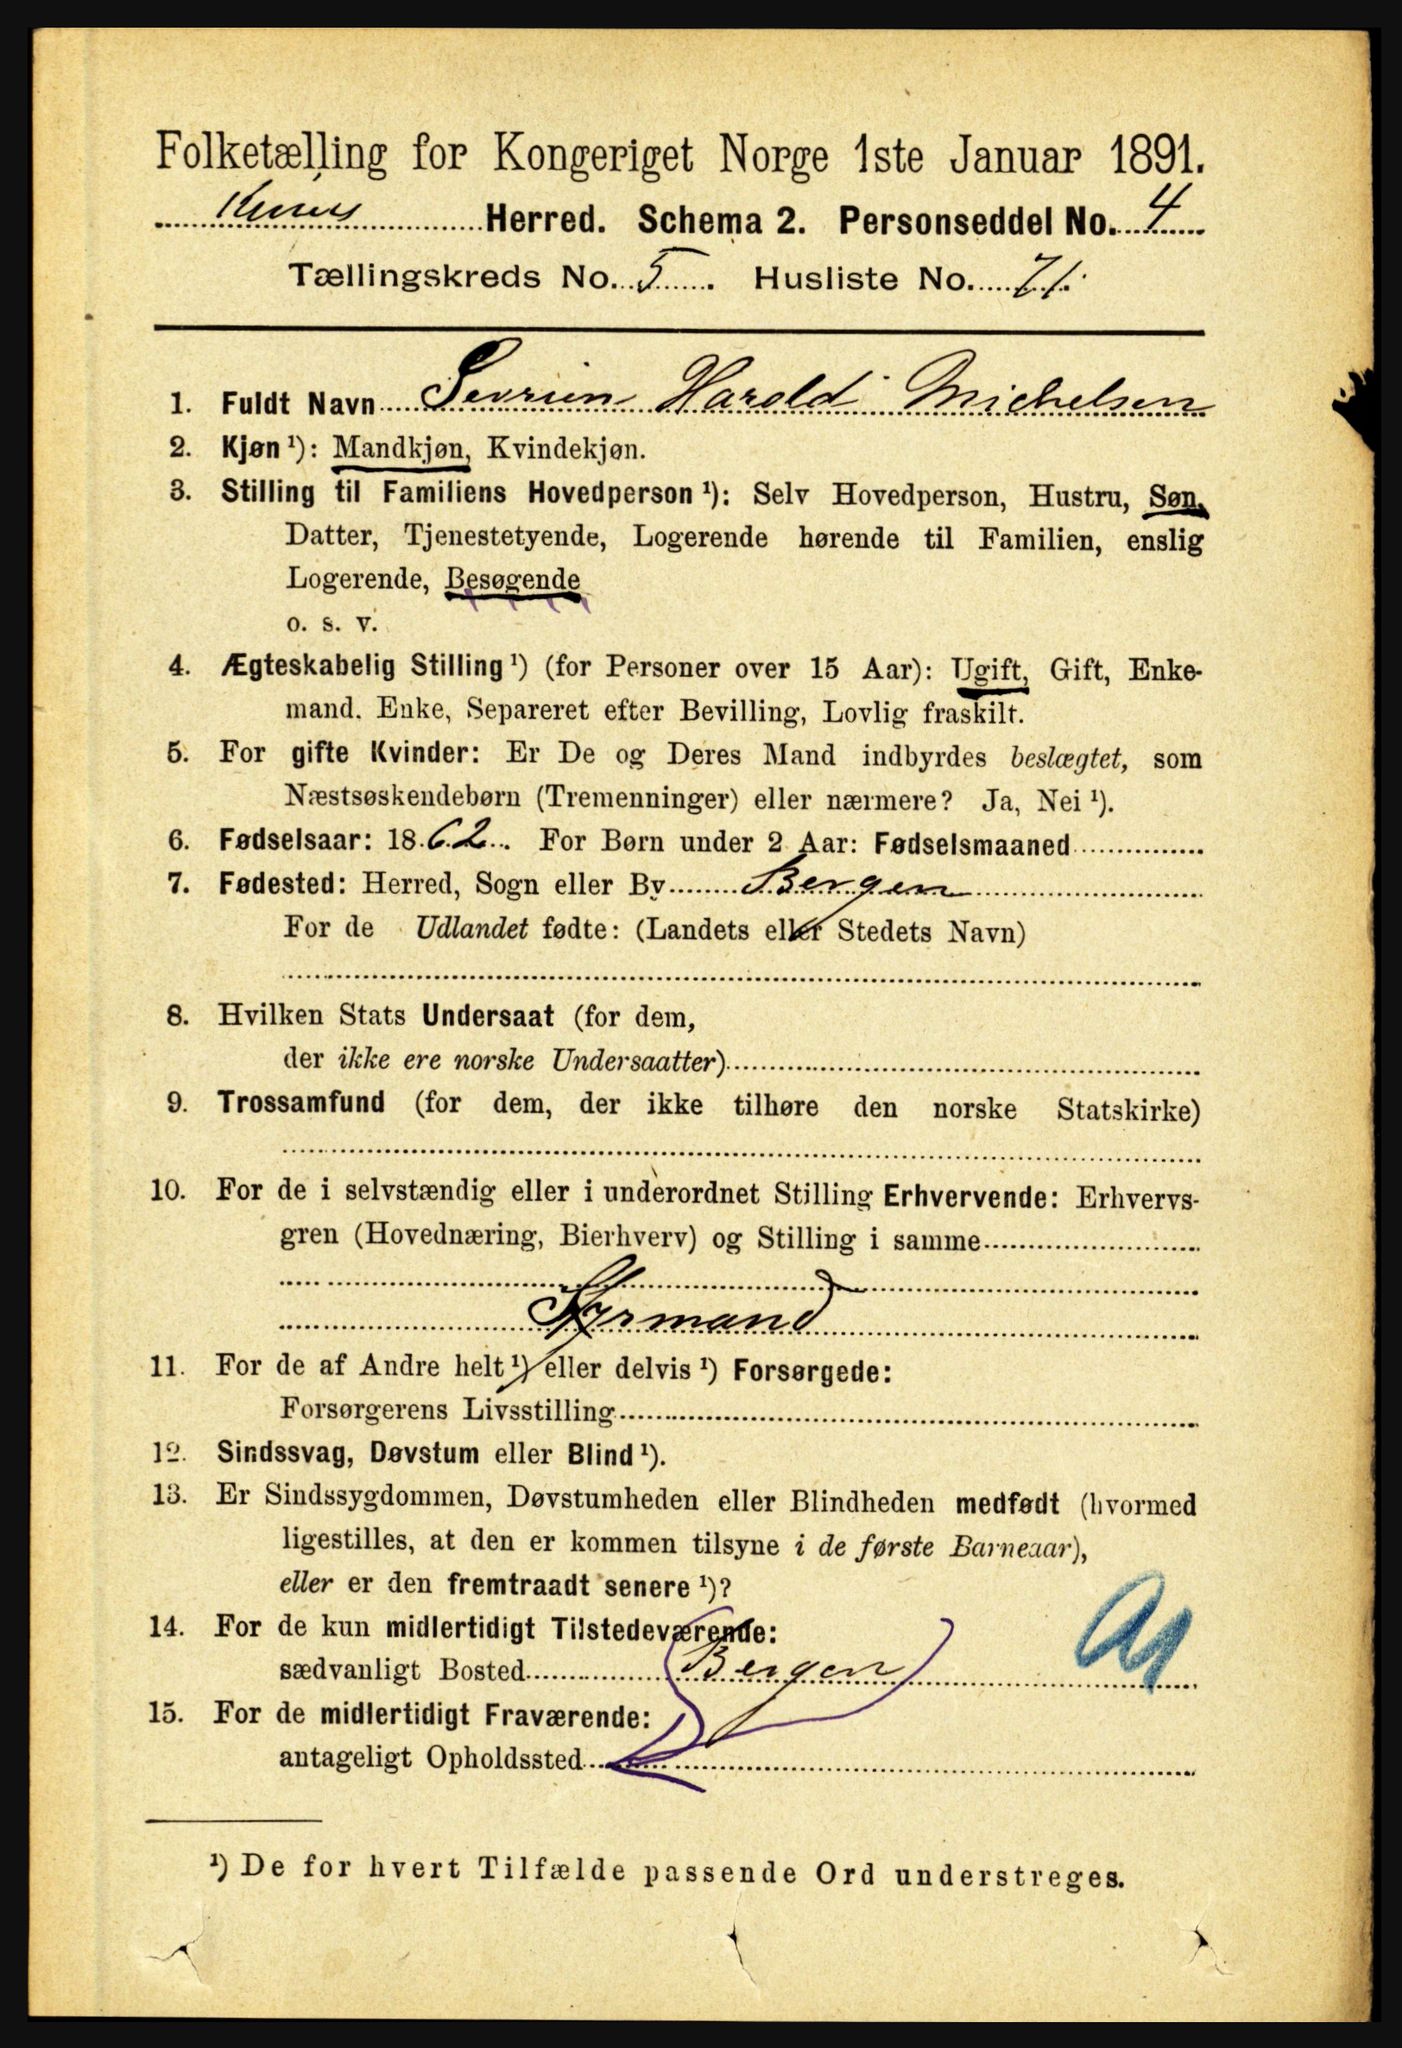 Folketælling for Kongeriget Norge 1ste Januar 1891.
Kinns Herred. Schema 2. Personseddel No. 4
Tællingskreds No. 5. Husliste No. 71.
1. Fuldt Navn Severin Harold Michelsen
2. Kjøn ¹): Mandkjøn, Kvindekjøn.
3. Stilling til Familiens Hovedperson ¹): Selv Hovedperson, Hustru, Søn,
Datter, Tjenestetyende, Logerende hørende til Familien, enslig
Logerende, Besøgende
o. s. v.
4. Ægteskabelig Stilling ¹) (for Personer over 15 Aar): Ugift, Gift, Enke-
mand. Enke, Separeret efter Bevilling, Lovlig fraskilt.
5. For gifte Kvinder: Er De og Deres Mand indbyrdes beslægtet, som
Næstsøskendebørn (Tremenninger) eller nærmere? Ja, Nei ¹).
6. Fødselsaar: 1862. For Børn under 2 Aar: Fødselsmaaned
7. Fødested: Herred, Sogn eller By Bergen
For de Udlandet fødte: (Landets eller Stedets Navn)
8. Hvilken Stats Undersaat (for dem,
der ikke ere norske Undersaatter)
9. Trossamfund (for dem, der ikke tilhøre den norske Statskirke)
10. For de i selvstændig eller i underordnet Stilling Erhvervende: Erhvervs-
gren (Hovednæring, Bierhverv) og Stilling i samme
Styrmand
11. For de af Andre helt ¹) eller delvis ¹) Forsørgede:
Forsørgerens Livsstilling
12. Sindssvag, Døvstum eller Blind ¹).
13. Er Sindssygdommen, Døvstumheden eller Blindheden medfødt (hvormed
ligestilles, at den er kommen tilsyne i de første Barneaar),
eller er den fremtraadt senere ¹)?
14. For de kun midlertidigt Tilstedeværende:
sædvanligt Bosted (Bergen)
15. For de midlertidigt Fraværende:
antageligt Opholdssted
¹) De for hvert Tilfælde passende Ord understreges.